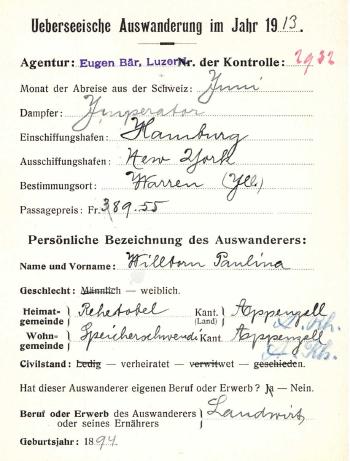 Ueberseeische Auswanderung im Jahr 1913.
Agentur: Eugen Bär, Luzern Nr. der Kontrolle: 2932
Monat der Abreise aus der Schweiz: Juni
Dampfer: Imperator
Einschiffungshafen: Hamburg
Ausschiffungshafen: New York
Bestimmungsort: Warren (Ill.)
Passagepreis: Fr. 389.55
Persönliche Bezeichnung des Auswanderers:
Name und Vorname: Paulina
Geschlecht: Männlich — weiblich.
Heimatgemeinde Rehetobel Kant. (Land) Appenzell A. Rh.
Wohngemeinde Speicherschwendi Kant. Appenzell A. Rh.
Civilstand: Ledig — verheiratet — verwitwet — geschieden.
Hat dieser Auswanderer eigenen Beruf oder Erwerb? Ja — Nein.
Beruf oder Erwerb des Auswanderers Landwirt
oder seines Ernährers
Geburtsjahr: 1894